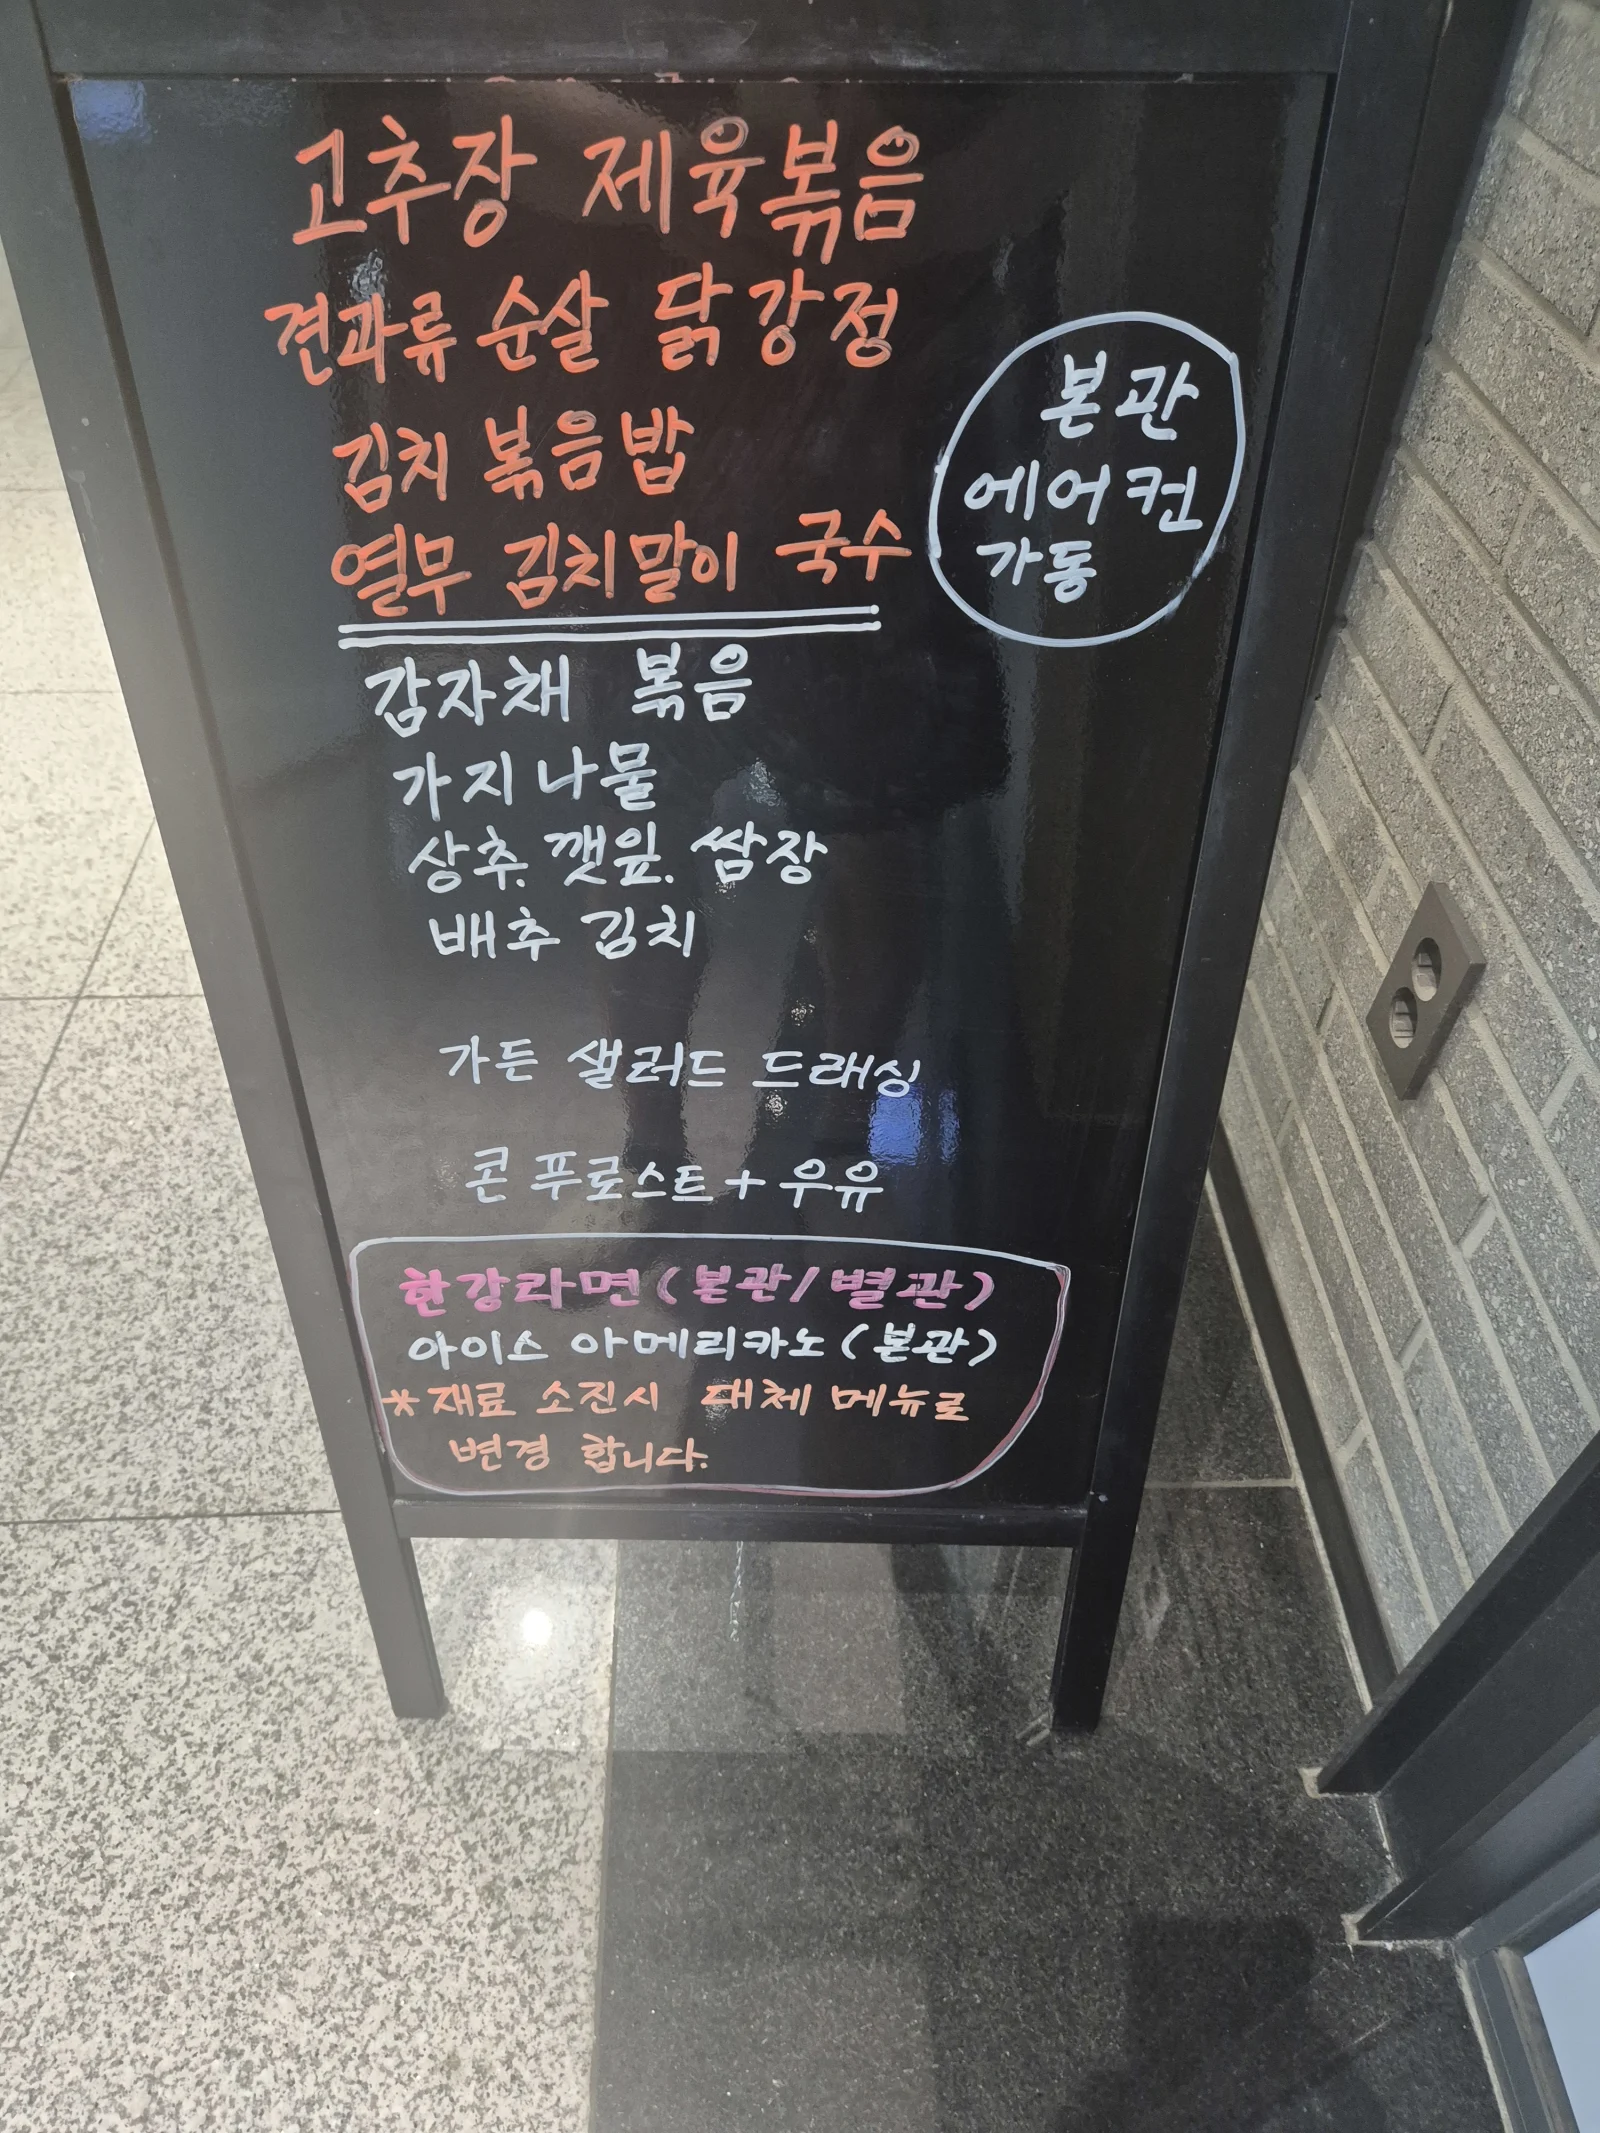 고추장 제육볶음
견과류 순살 닭강정
김치 볶음밥
열무 김치말이 국수
본관
에어컨
가동
감자채 볶음
가지나물
상추. 깻잎. 쌈장
배추 김치
가든 샐러드 드래싱
콘 푸로스트 + 우유
한강라면 (본관/별관)
아이스 아메리카노 (본관)
* 재료 소진시 대체 메뉴로
변경 합니다.